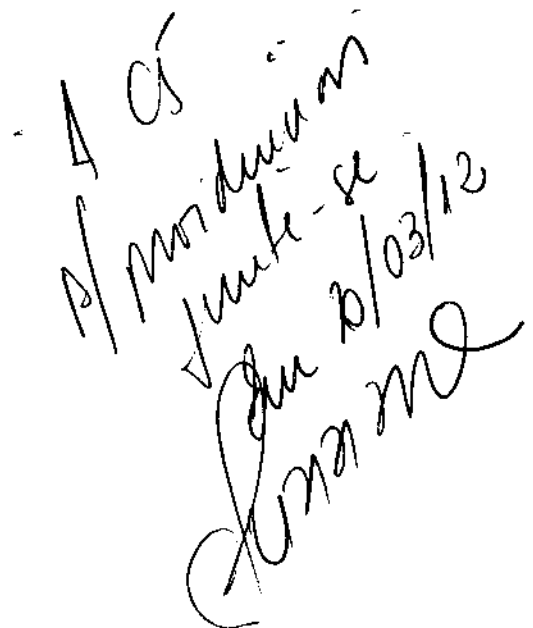 A CS
p/ providências
junte-se
Em 20/03/12